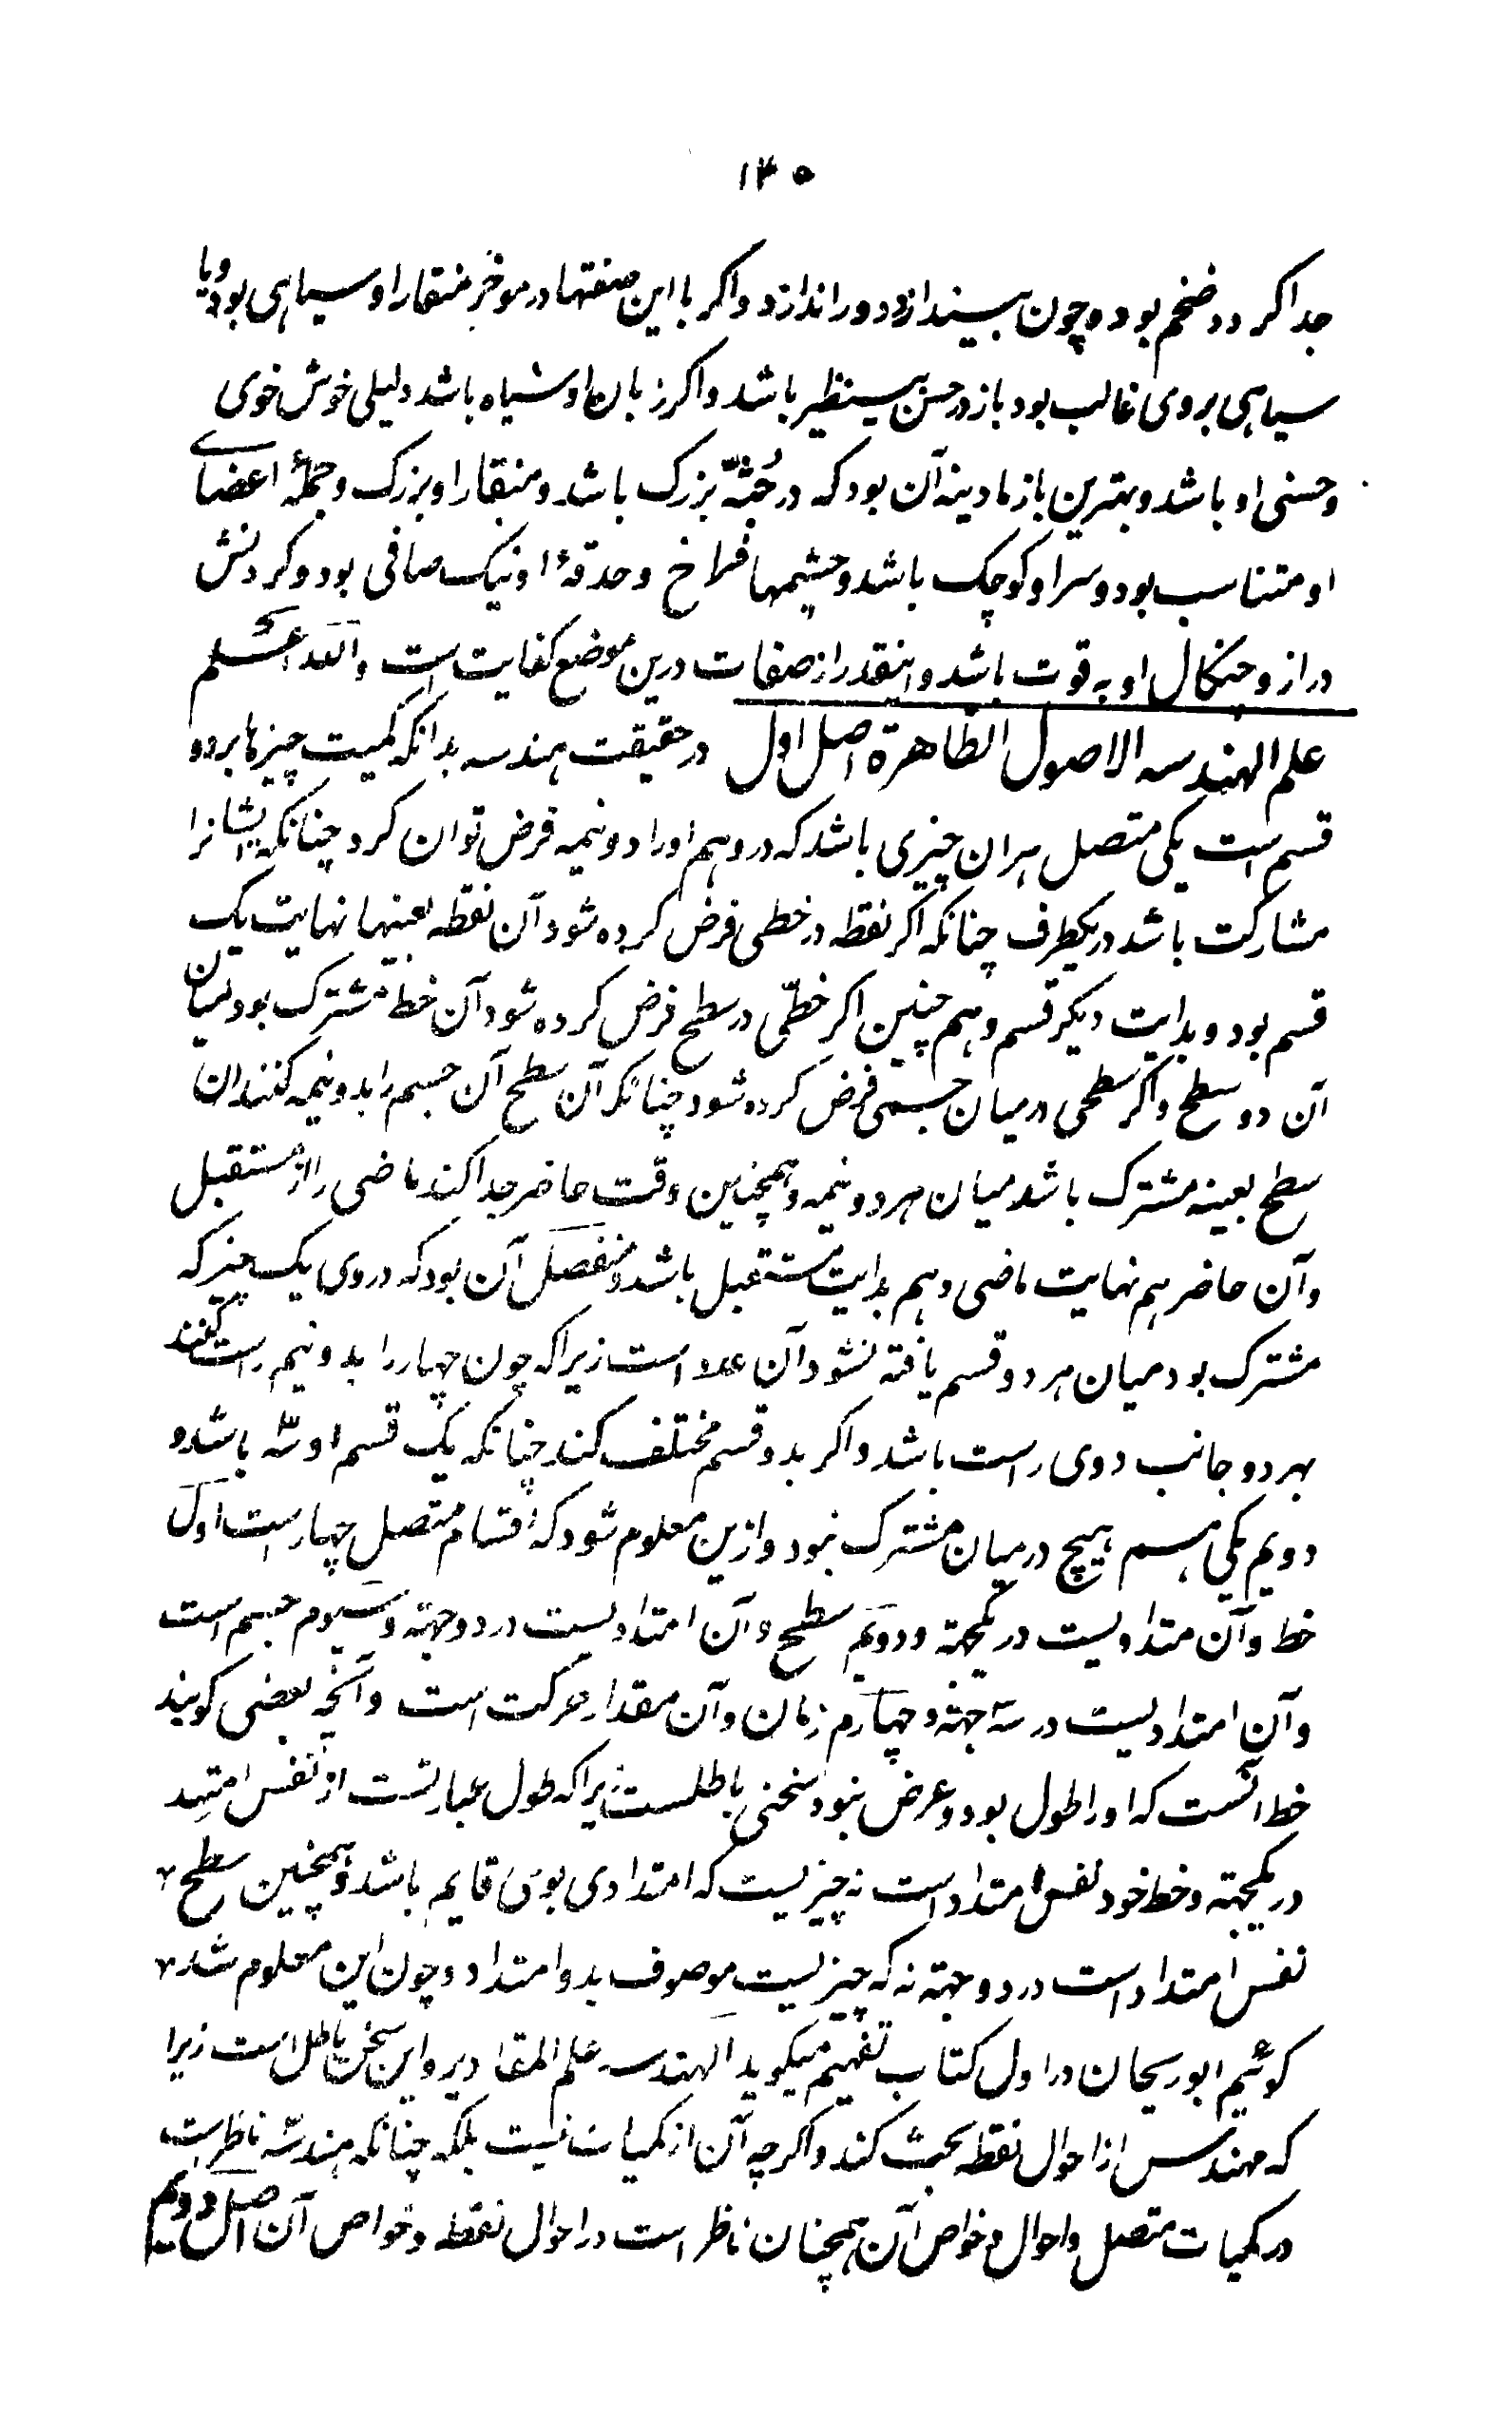 ۱۴۵
جدا کردد ضخم بود و چون بیندازد دور اندازد واکر با این صفتها در موخر منقار او سیاهی بود و یا
سیاهی بروی غالب بود باز در حسن بینظیر باشد واکر زبان او سیاه باشد دلیلی خوش خوی
وحسنی او باشد وبهترین باز مادینه آن بود که در جُثّه بزرک باشد ومنقار او بزرک وجملهٔ اعضای
او متناسب بود وسر او کوچک باشد وچشمها فراخ وحدقهٔ او نیک صافی بود وکردنش
دراز وچنکال او به قوت باشد واینقدر از صفات درین موضع کفایت است والله اعلم
علم الهندسه الاصول الظاهرة اصل اول در حقیقت هندسه بدانکه کمیت چیزها بردو
قسم است یکی متصل هران چیزی باشد که در وهم اورا دو نیمه فرض توان کرد چنانکه ایشانرا
مشارکت باشد در یکطرف چنانکه اکر نقطه در خطی فرض کرده شود آن نقطه بعینها نهایت یک
قسم بود وبدایت دیکر قسم وهم چنین اکر خطّی در سطح فرض کرده شود آن خط مشترک بود میان
آن دو سطح واکر سطحی در میان جسمی فرض کرده شود چنانکه آن سطح آن جسم را بدونیمه کند آن
سطح بعینه مشترک باشد میان هر دو نیمه وهمچنین وقت حاضر جدا کند ماضی را از مستقبل
وآن حاضر هم نهایت ماضی وهم بدایت مستقبل باشد ومنفصل آن بود که دروی یک چیز که
مشترک بود میان هر دو قسم یافته نشود آن عدد است زیرا که چون چهار را بدو نیم راست کنند
بهردو جانب دوی راست باشد واکر بدو قسم مختلف کند چنانکه یک قسم او سه باشد و
دویم یکی هم هیچ در میان مشترک نبود وازین معلوم شود که اقسام متصل چهار است اول
خط وآن امتدادیست در یکجهته ودویم سطح وآن امتدادیست در دوجهته وسیوم جسم است
وآن امتدادیست در سه جهته وچهارم زمان وآن مقدار حرکت است وآنچه بعضی کویند
خط آنست که اورا طول بود وعرض نبود سخنی باطلست زیرا که طول عبارتست از نفس امتداد
در یکجهته وخط خود نفس امتداد است نه چیزیست که امتدادی بوی قایم باشد وهمچنین سطح
نفس امتداد است در دوجهته نه که چیزیست موصوف بدو امتداد وچون این معلوم شد
کوئیم ابوریحان در اول کتاب تفهیم میکوید الهندسه علم المقادیر واین سخن باطل است زیرا
که مهندس از احوال نقطه بحث کند واکرچه آن از کمیات نیست بلکه چنانکه هندسه ناظر است
در کمیات متصل واحوال وخواص آن همچنان ناظر است در احوال نقطه وخواص آن اصل دویم